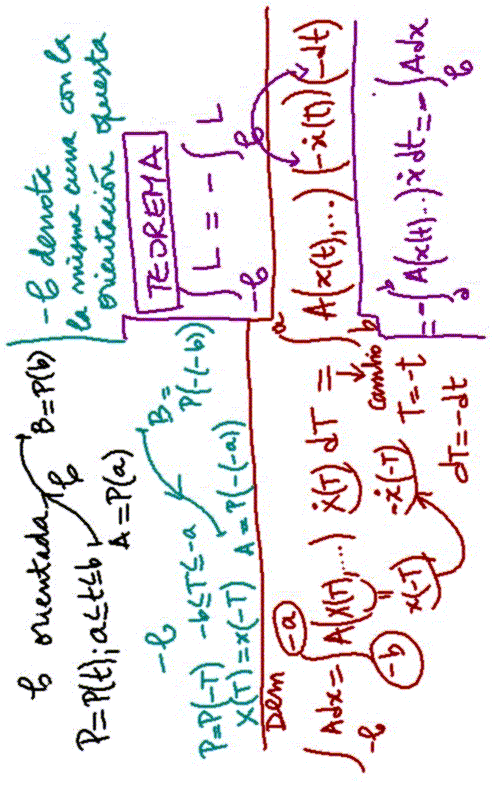 𝒞 orientada
P=P(t); a≤t≤b
A=P(a)
B=P(b)
𝒞
-𝒞 denota
la misma curva con la
orientación opuesta
-𝒞
P=P(-T) -b≤T≤-a
X(T)=x(-T) A=P(-(-a))
B=
P(-(-b))
TEOREMA
∫_{-𝒞} L = - ∫_𝒞 L
Dem
∫_{-𝒞} Adx = ∫_{-b}^{-a} A(X(T),...) Ẋ(T) dT = ∫_b^a A(x(t),...) (-ẋ(t)) (-dt)
x(-T) -ẋ(-T)
cambio
T=-t
dT=-dt
= -∫_a^b A(x(t)..) ẋdt = -∫_𝒞 Adx